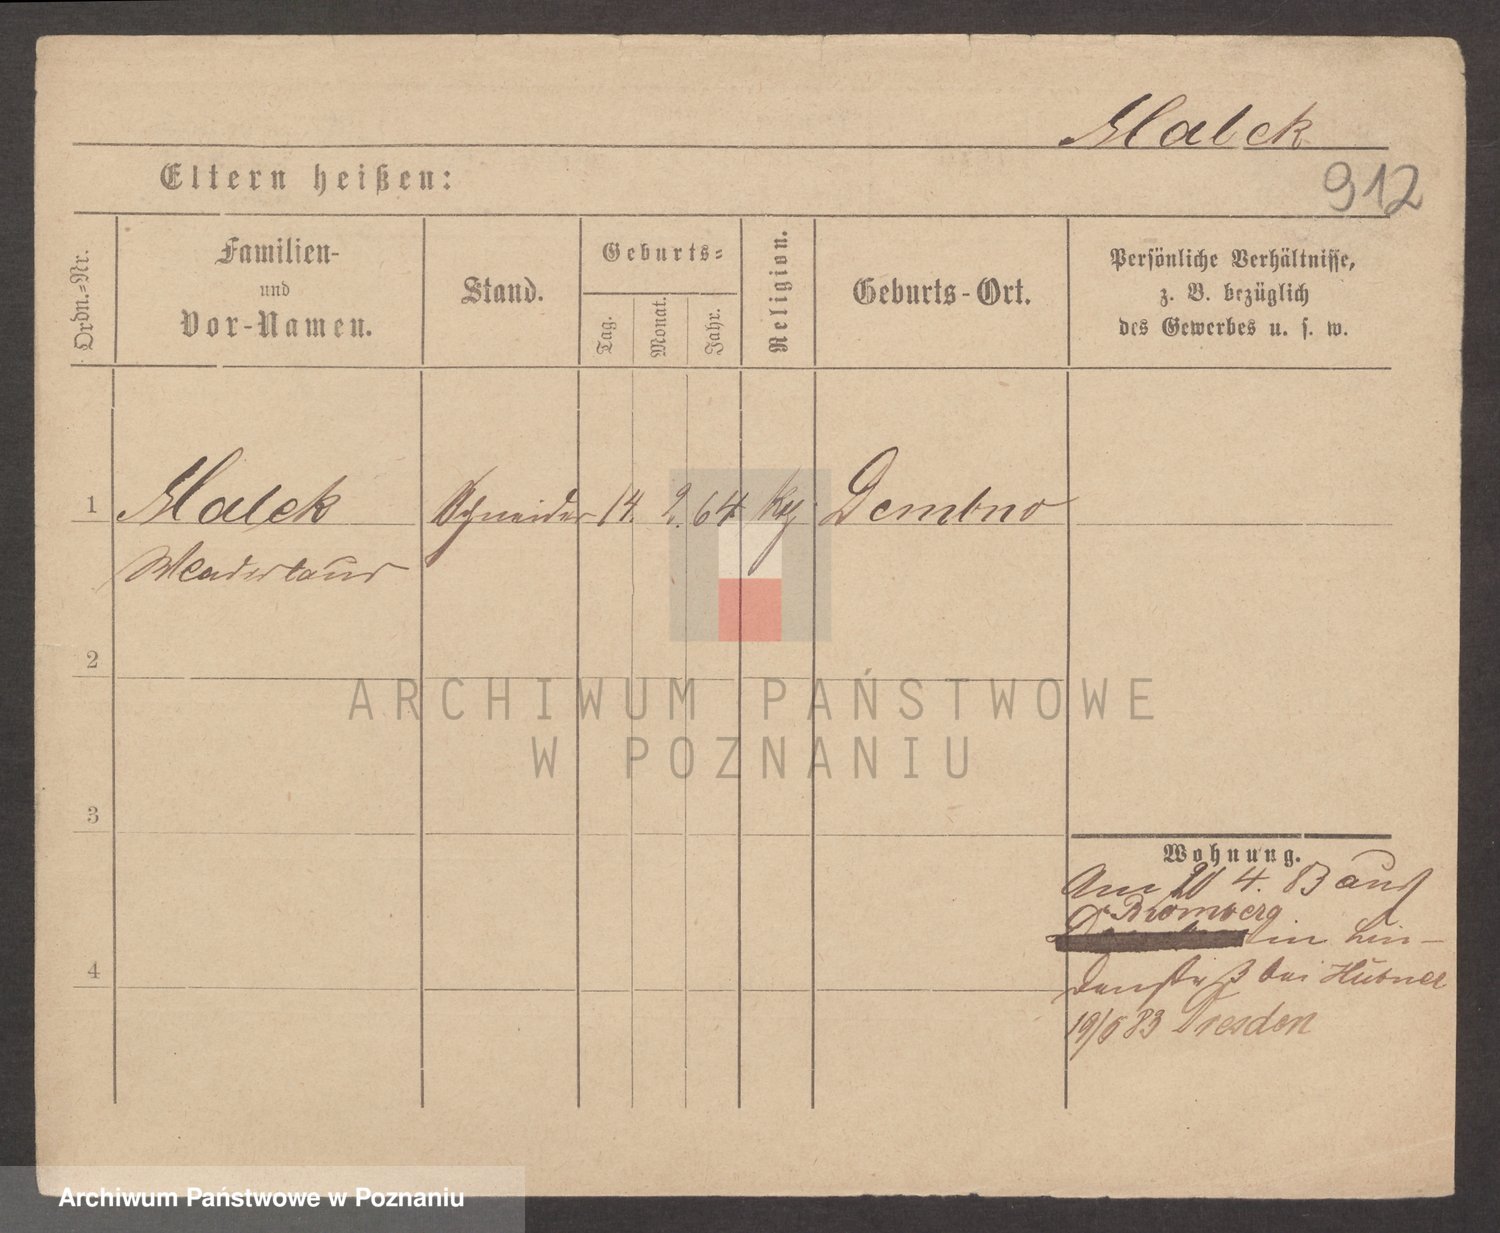 Malek
912
Eltern heißen:
Ordn.-Nr.
Familien-
und
Vor-Namen.
Stand.
Geburts-
Tag.
Monat.
Jahr.
Religion.
Geburts-Ort.
Persönliche Verhältnisse,
z. B. bezüglich
des Gewerbes u. s. w.
1
Malek
Schneider
14.
2.
64
Dembno
2
3
4
Wohnung.
Am 20 4. 83 aus
Bromberg
in Lin-
denstrß bei Hübner
83 Dresden
ARCHIWUM PAŃSTWOWE
W POZNANIU
Archiwum Państwowe w Poznaniu